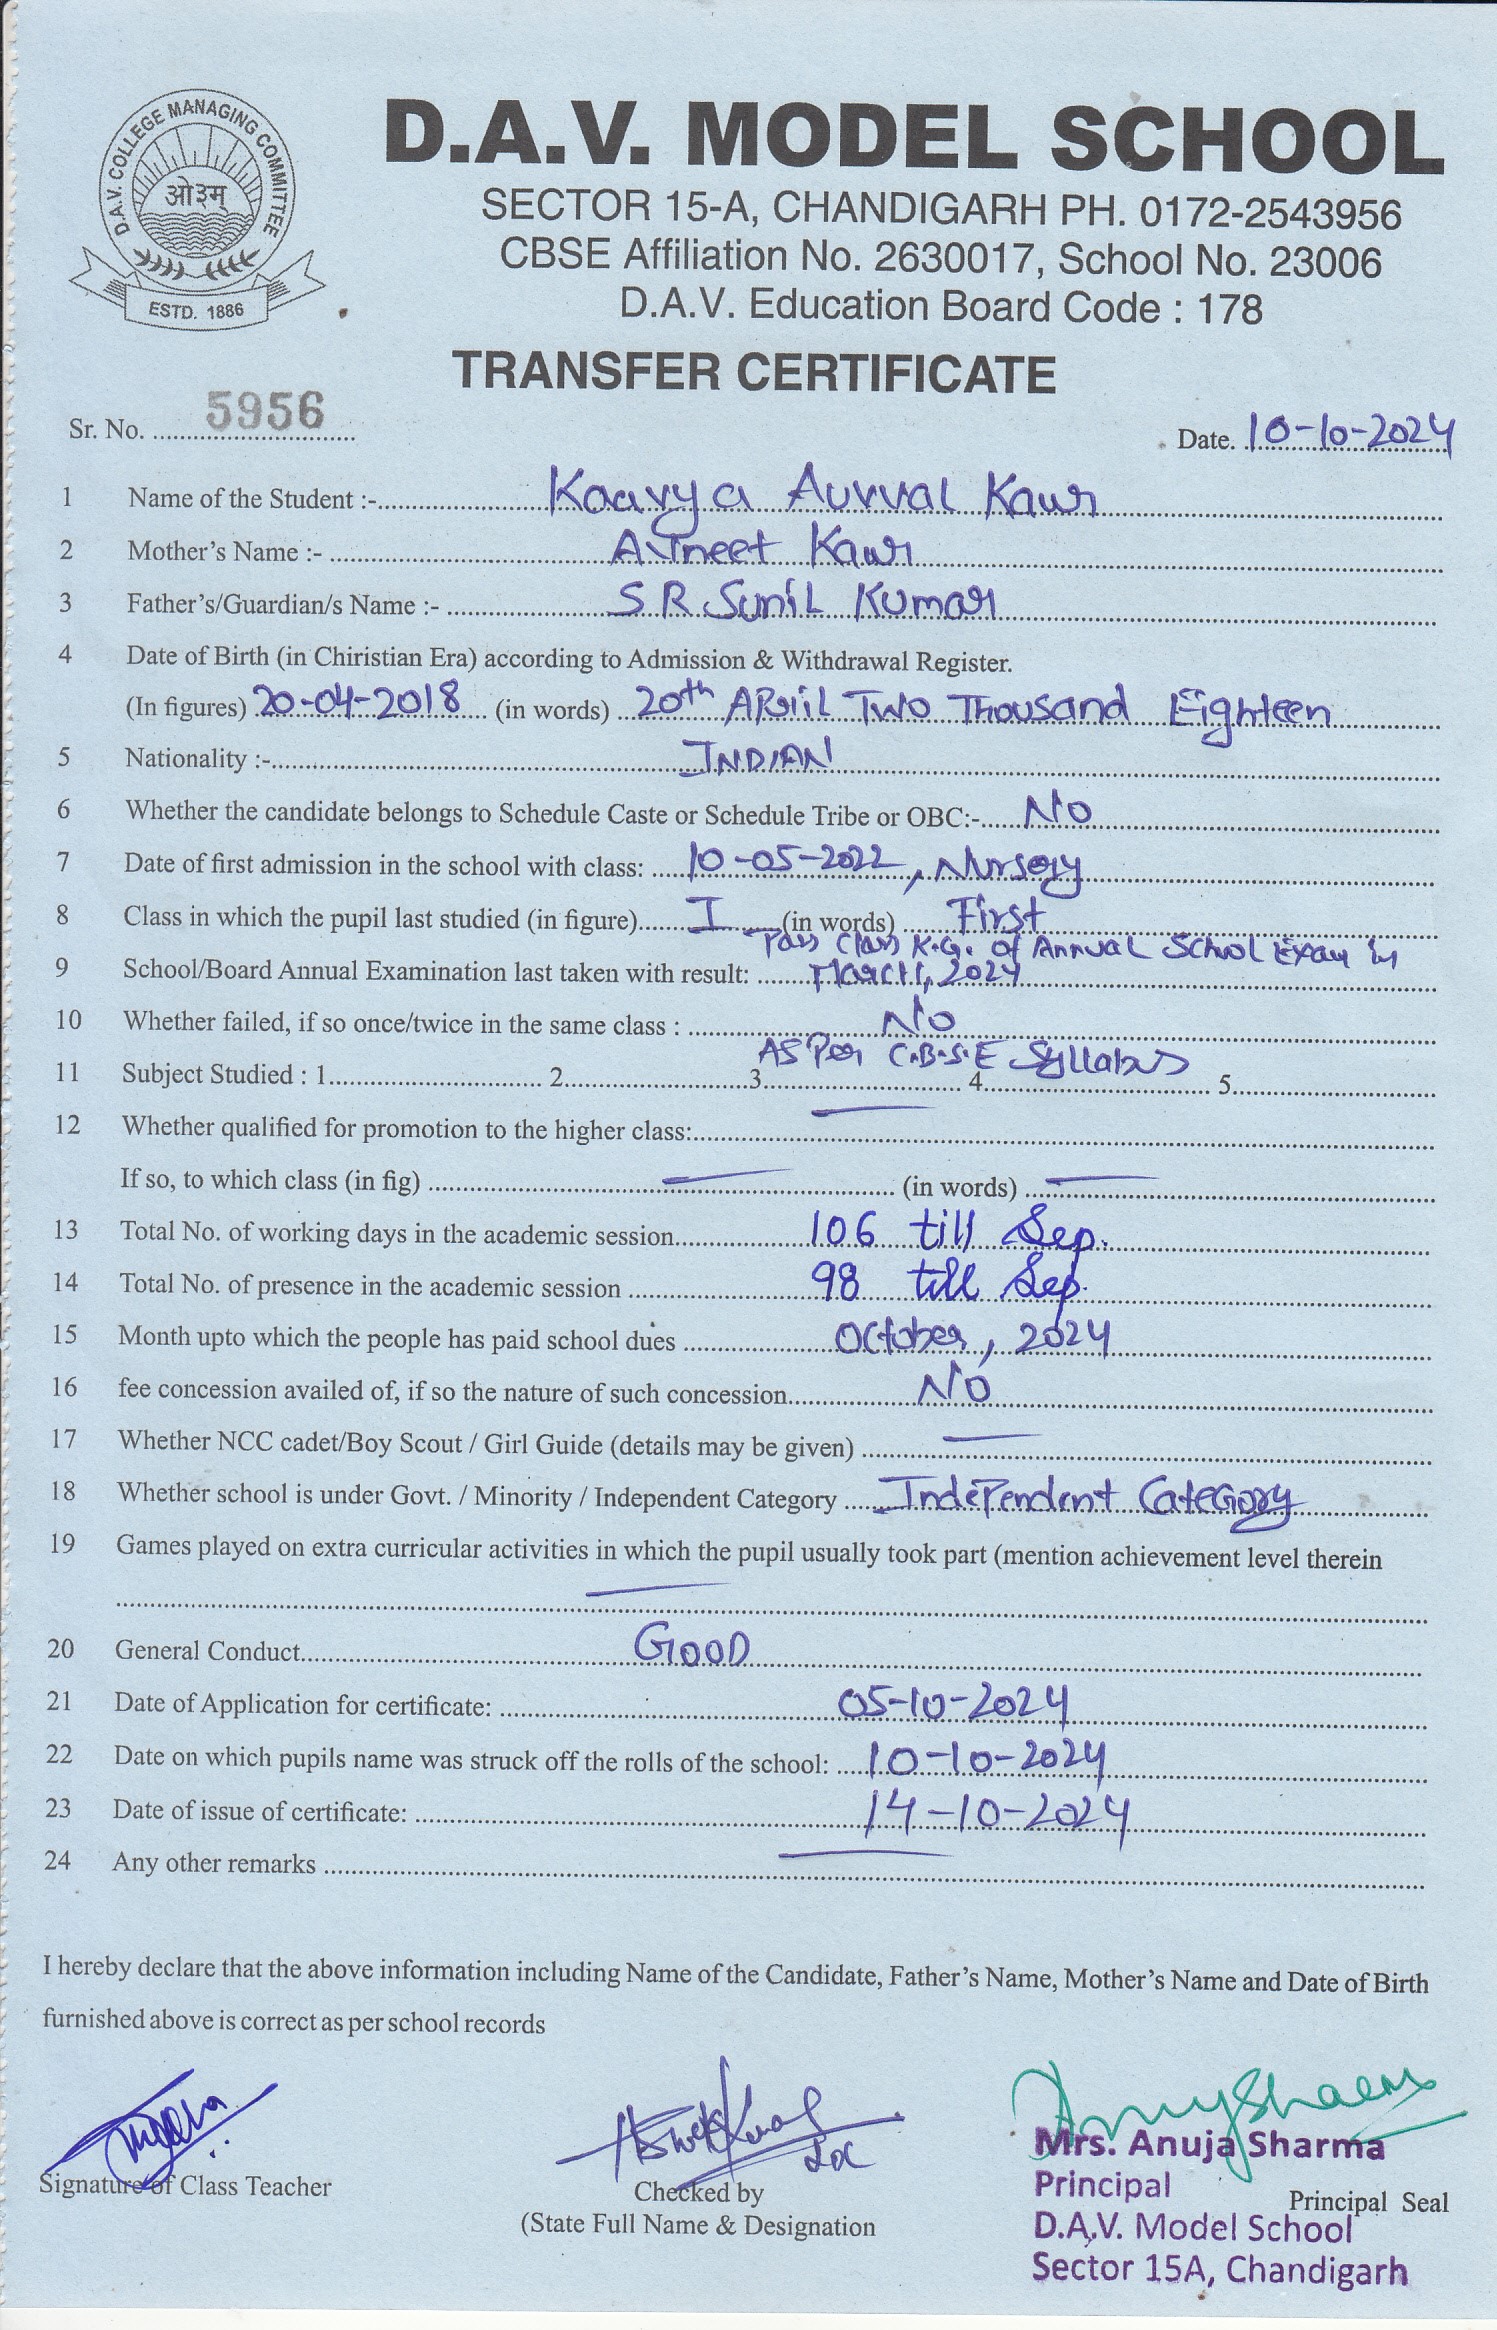 D.A.V. COLLEGE MANAGING COMMITTEE
ओ३म्
ESTD. 1886
D.A.V. MODEL SCHOOL
SECTOR 15-A, CHANDIGARH PH. 0172-2543956
CBSE Affiliation No. 2630017, School No. 23006
D.A.V. Education Board Code : 178
TRANSFER CERTIFICATE
Sr. No. 5956 Date. 10-10-2024
1 Name of the Student :- Kaavya Auvval Kaur
2 Mother's Name :- Avneet Kaur
3 Father's/Guardian/s Name :- S R Sunil Kumar
4 Date of Birth (in Chiristian Era) according to Admission & Withdrawal Register.
(In figures) 20-04-2018 (in words) 20th April Two Thousand Eighteen
5 Nationality :- INDIAN
6 Whether the candidate belongs to Schedule Caste or Schedule Tribe or OBC:- No
7 Date of first admission in the school with class: 10-05-2022, Nursery
8 Class in which the pupil last studied (in figure) I (in words) First
Pass Class K.G. of Annual School Exam in
9 School/Board Annual Examination last taken with result: March, 2024
10 Whether failed, if so once/twice in the same class : No
As Per C.B.S.E Syllabus
11 Subject Studied : 1. 2. 3 4. 5.
12 Whether qualified for promotion to the higher class: —
If so, to which class (in fig) — (in words) —
13 Total No. of working days in the academic session 106 till Sep.
14 Total No. of presence in the academic session 98 till Sep.
15 Month upto which the people has paid school dues October, 2024
16 fee concession availed of, if so the nature of such concession No
17 Whether NCC cadet/Boy Scout / Girl Guide (details may be given) —
18 Whether school is under Govt. / Minority / Independent Category Independent Category
19 Games played on extra curricular activities in which the pupil usually took part (mention achievement level therein
—
20 General Conduct GOOD
21 Date of Application for certificate: 05-10-2024
22 Date on which pupils name was struck off the rolls of the school: 10-10-2024
23 Date of issue of certificate: 14-10-2024
24 Any other remarks —
I hereby declare that the above information including Name of the Candidate, Father's Name, Mother's Name and Date of Birth
furnished above is correct as per school records
Signature of Class Teacher
Checked by
(State Full Name & Designation
Mrs. Anuja Sharma
Principal
Principal Seal
D.A.V. Model School
Sector 15A, Chandigarh